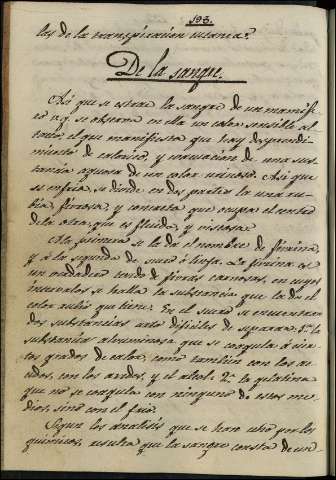 193.
las de la transpiracion cutanea.
De la sangre.
Asi que se estrae la sangre de un mamife-
ro v.g. se observa en ella un calor sensible al
tacto el que manifiesta que hay desprendi-
miento de calorico, y evacuacion de una sus-
tancia aquosa de un color urinoso. Asi que
se enfria, se divide en dos partes la una ru-
bia, fibrosa, y compacta que ocupa el centro
de la otra, que es fluida, y viscosa.
A la primera se la da el nombre de fibrina,
y á la segunda de suero ó linfa. La fibrina es
un quadro de fibras carnosas, en cuyos
intervalos se halla la substancia que la da el
color rubio que tiene. En el suero se encuentran
dos substancias arto dificiles de separar: 1.ª la
substancia albuminosa que se coagula á cier-
tos grados de calor, como tambien con los aci-
dos, con los acidos, y el alcohol: 2.ª la gelatina
que no se coagula con ninguno de estos me-
dios, sino con el frio.
Segun los analisis que se han echo por los
quimicos, resulta que la sangre consta de un